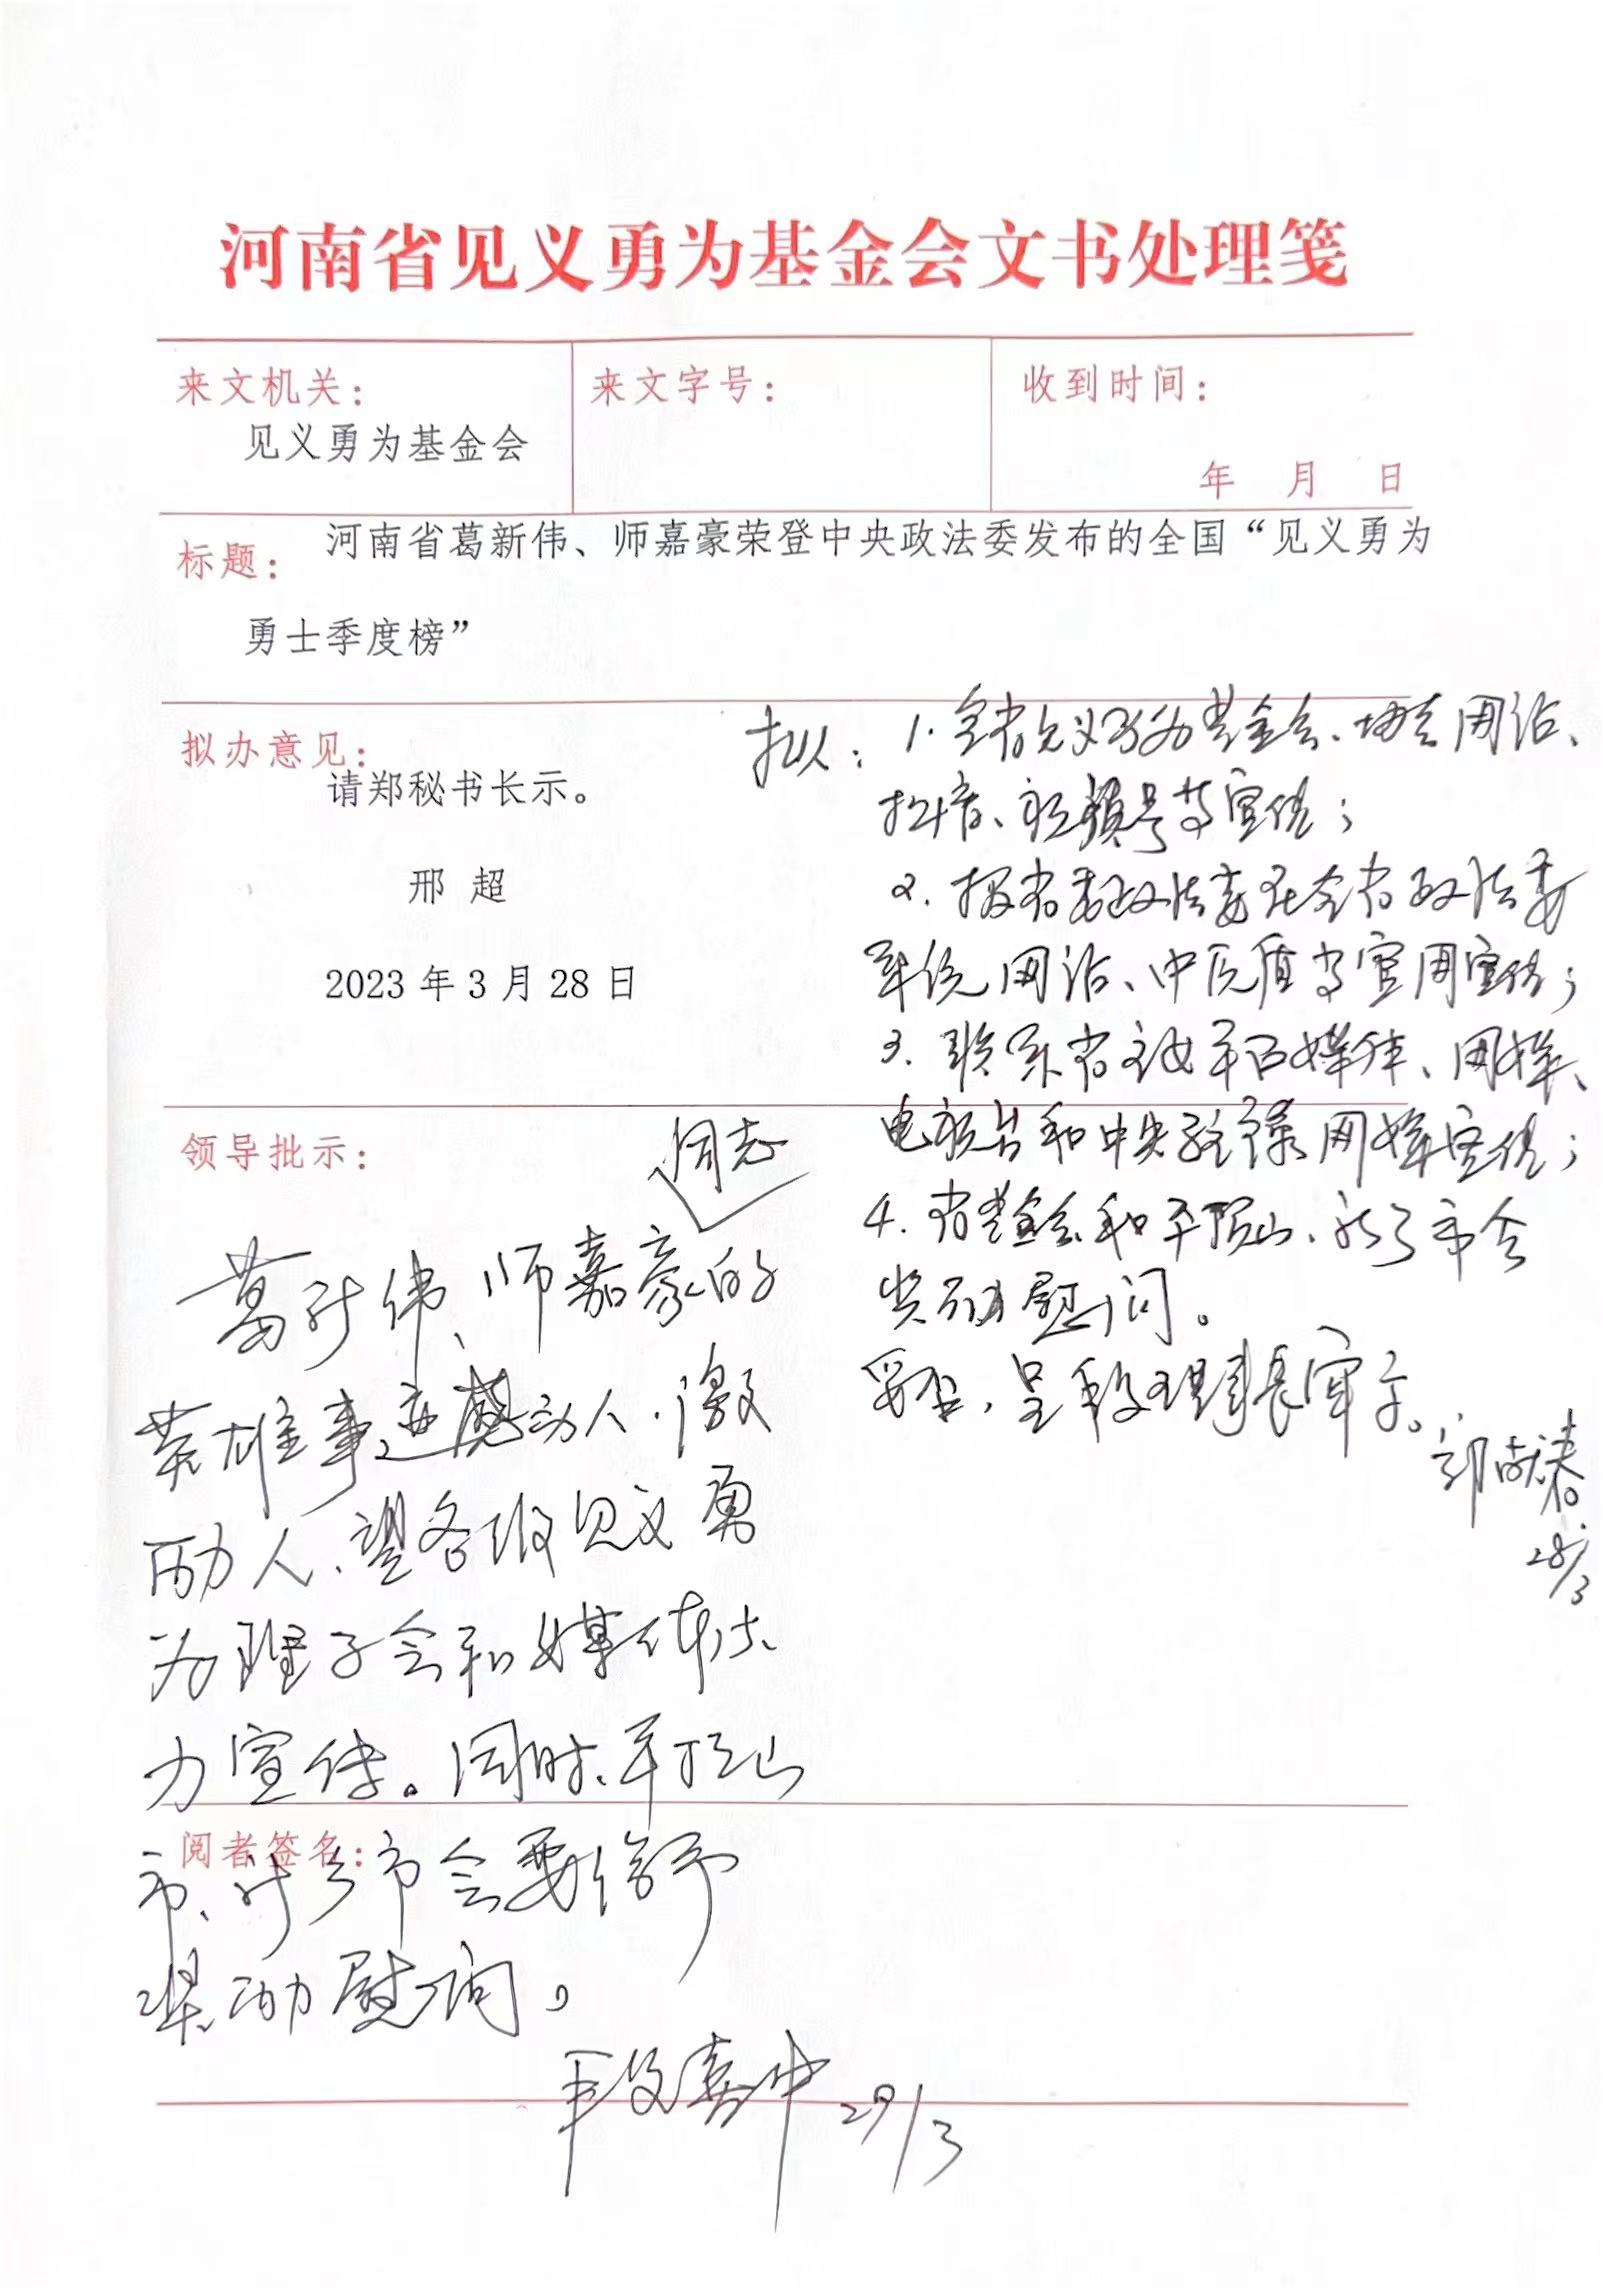 河南省见义勇为基金会文书处理笺
来文机关：
见义勇为基金会
来文字号：
收到时间：
年 月 日
标题：
河南省葛新伟、师嘉豪荣登中央政法委发布的全国“见义勇为
勇士季度榜”
拟办意见：
请郑秘书长示。
邢 超
2023 年 3 月 28 日
拟：1.全省见义勇为基金会、协会网站、
抖音、视频号等宣传；
2.报省委政法委在全省政法委
系统网站、中原盾等官网宣传；
3.联系省主流平台媒体、网媒、
电视台和中央驻豫网媒宣传；
4.省基金会和平顶山、新乡市会
奖励慰问。
妥否，呈 理事长审示。
28/3
领导批示：
同志
葛新伟、师嘉豪的
英雄事迹感动人、激
励人、望各级见义勇
为理事会和媒体大
力宣传。同时、平顶山
市、新乡市会要给予
奖励慰问。
29/3
阅者签名：